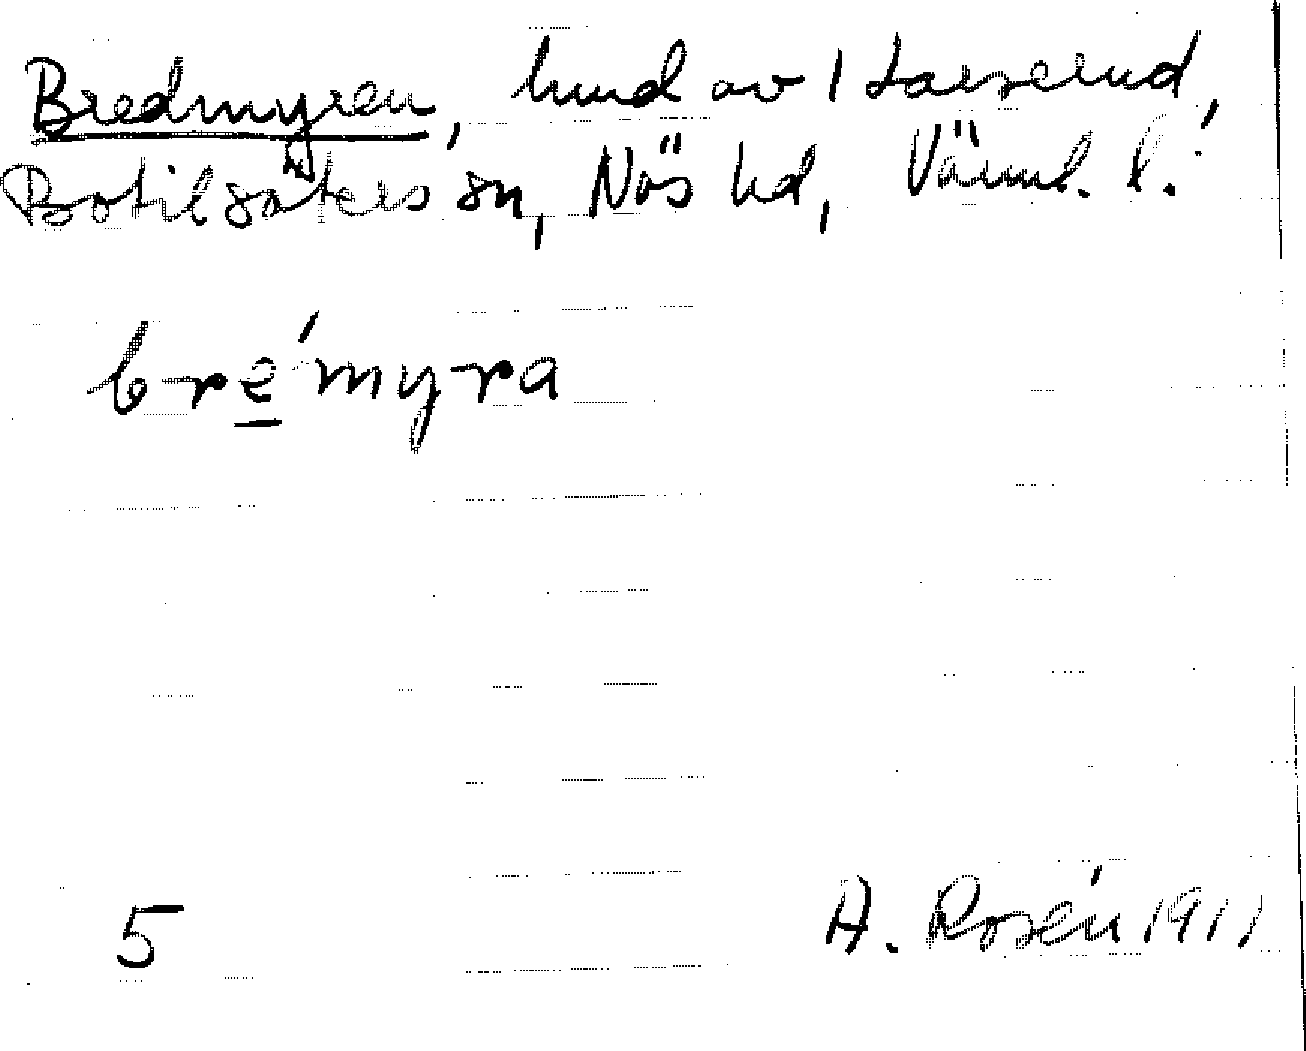 Bredmyren, hmd av 1 Larserud,
Botilsäters sn, Näs hd, Värml. l.
bre̲´myra
5 A. Rosén 1911